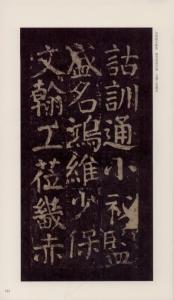 詁訓通小祕監
盛名鴻維少保
文翰工莅畿赤